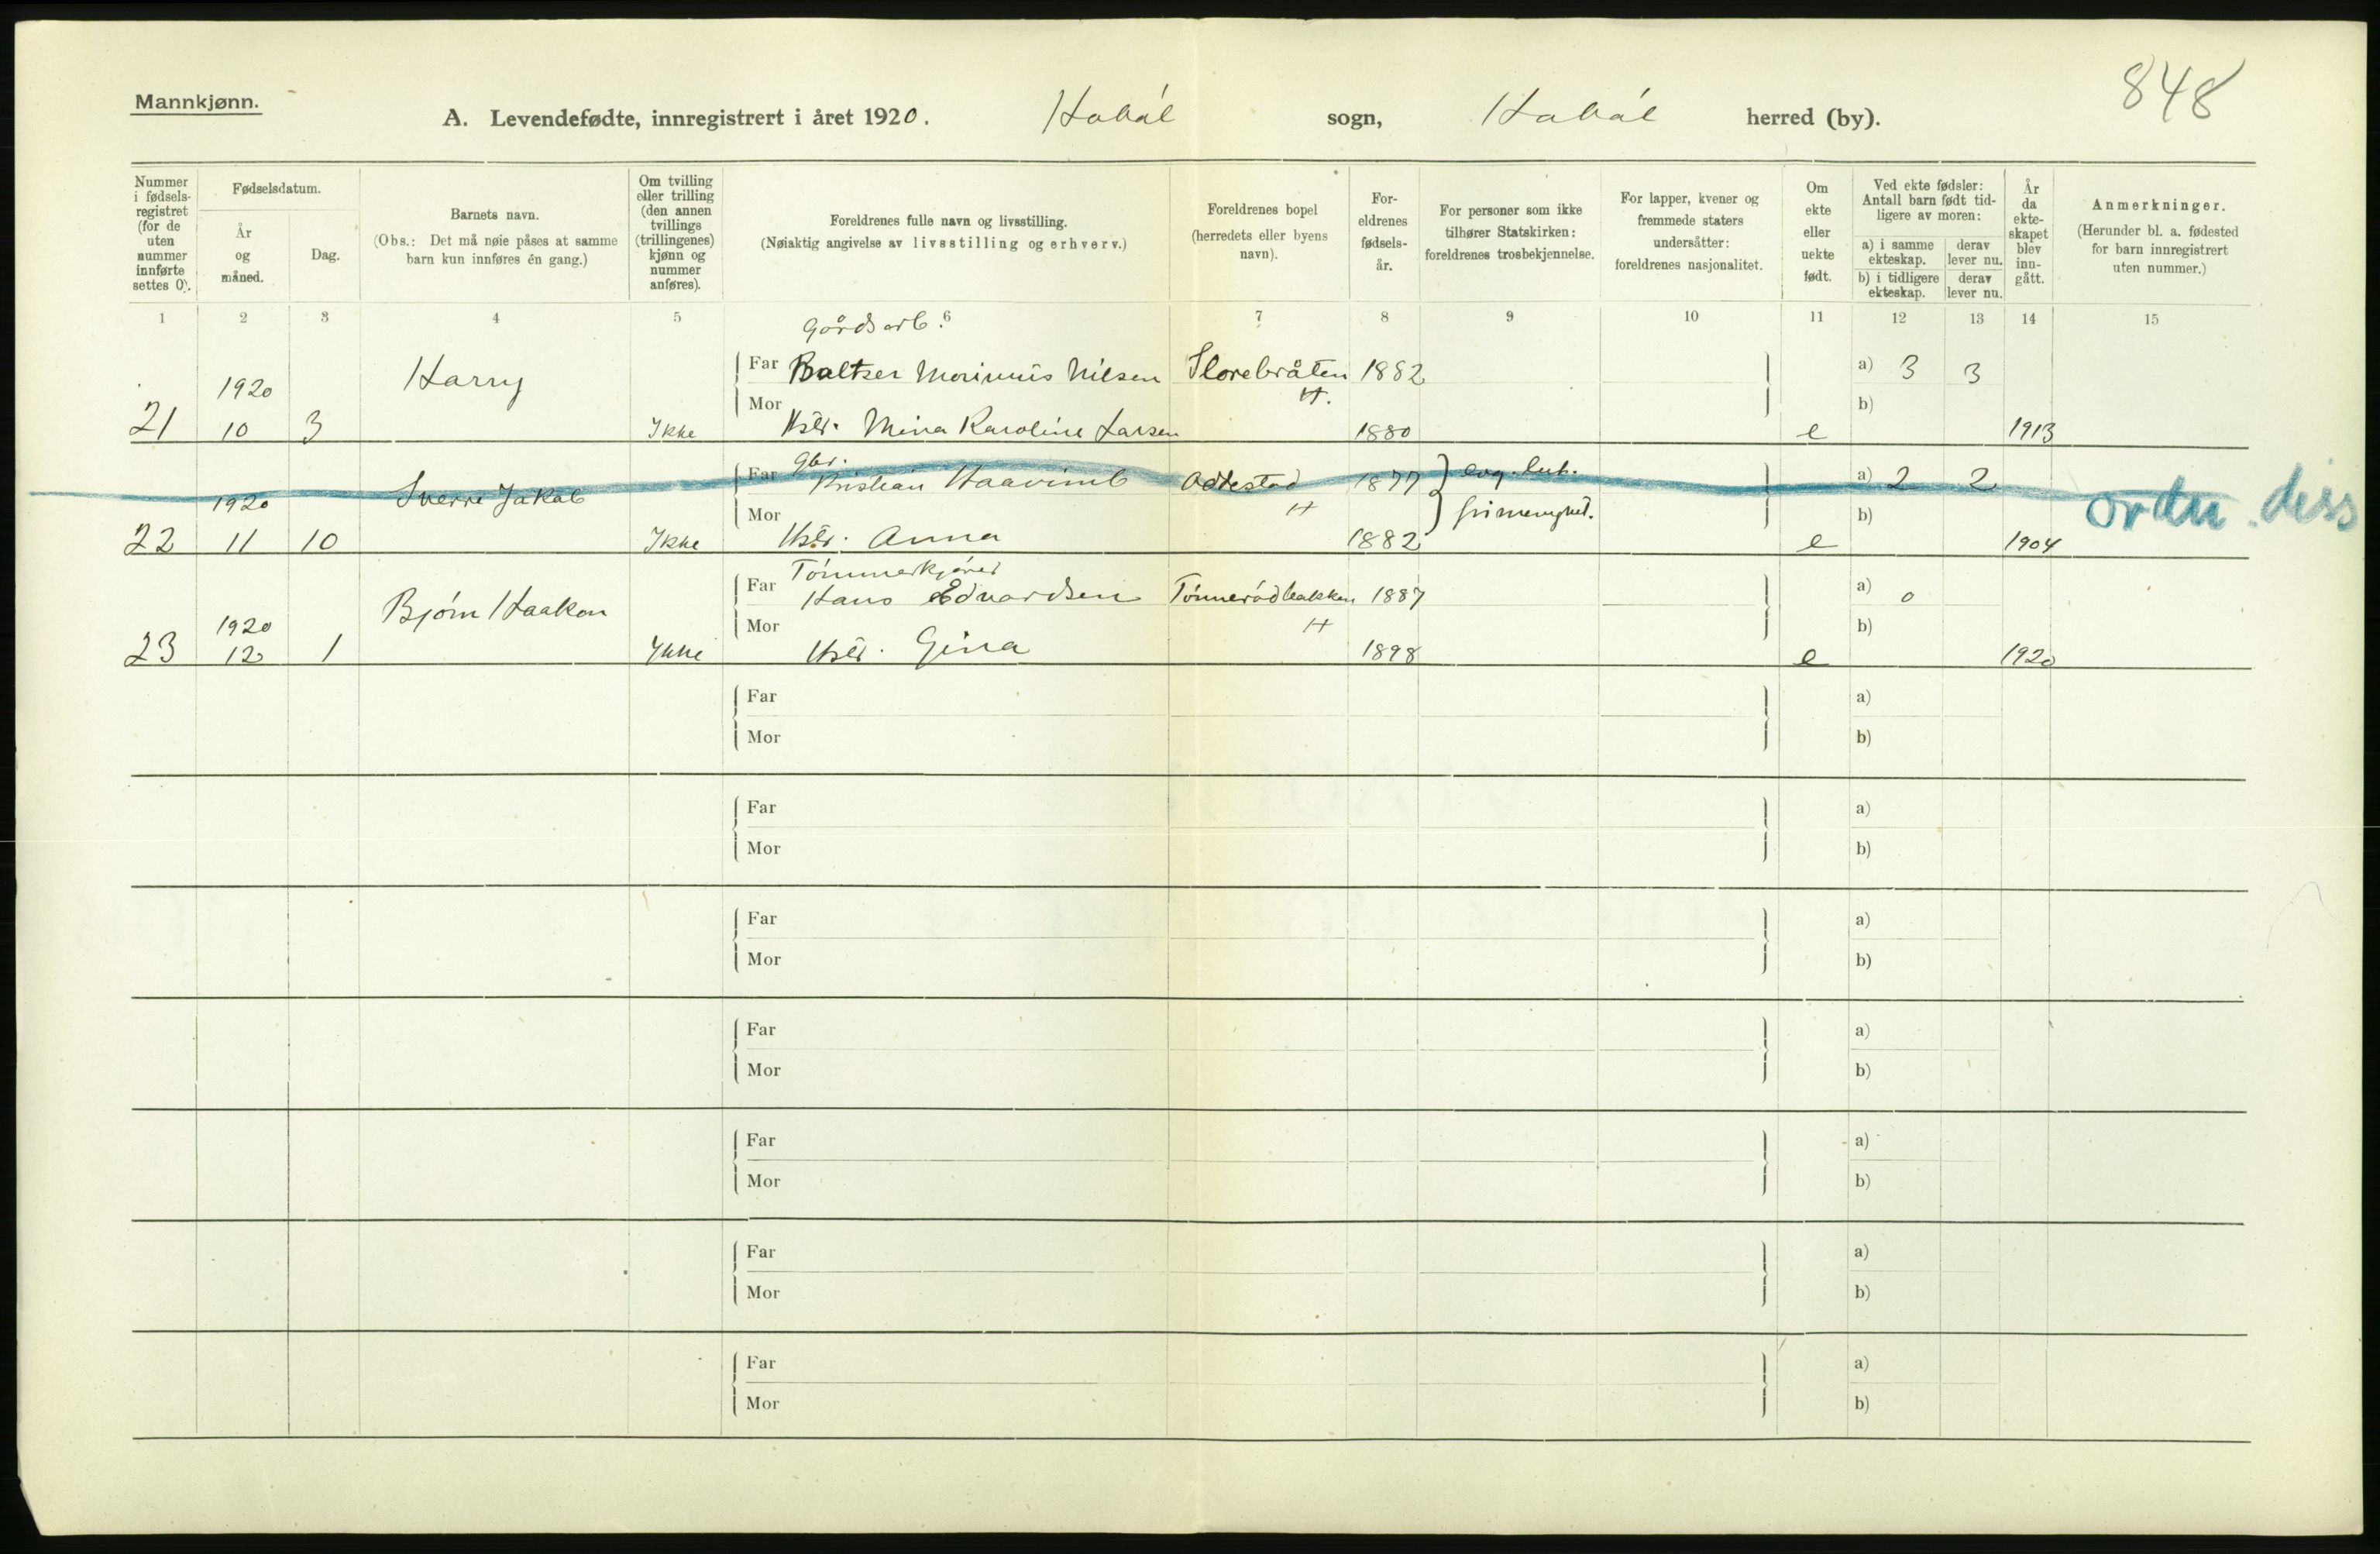 848
Mannkjønn.
A. Levendefødte, innregistrert i året 1920. Hobøl sogn, Hobøl herred (by).
Nummer i fødsels-registret (for de uten nummer innførte settes 0).
Fødselsdatum.
År og måned.
Dag.
Barnets navn.
(Obs.: Det må nøie påses at samme barn kun innføres én gang.)
Om tvilling eller trilling (den annen tvillings (trillingenes) kjønn og nummer anføres).
Foreldrenes fulle navn og livsstilling.
(Nøiaktig angivelse av livsstilling og erhverv.)
Foreldrenes bopel (herredets eller byens navn).
For-eldrenes fødsels-år.
For personer som ikke tilhører Statskirken: foreldrenes trosbekjennelse.
For lapper, kvener og fremmede staters undersåtter: foreldrenes nasjonalitet.
Om ekte eller uekte født.
Ved ekte fødsler: Antall barn født tid-ligere av moren:
a) i samme ekteskap. derav lever nu.
b) i tidligere ekteskap. derav lever nu.
År da ekte-skapet blev inn-gått.
Anmerkninger.
(Herunder bl. a. fødested for barn innregistrert uten nummer.)
1 2 3 4 5 6 7 8 9 10 11 12 13 14 15
Gårdsarb.
Harry Far Baltser Marinius Nilsen Slorebråten 1882 a) 3 3
1920 Mor H. b)
21 10 3 Ikke Hstr. Mina Karoline Larsen 1880 e 1913
gbr.
1920 Sverre Jakob Far Kristian Haavimb Odtestad 1877 evg. luth. a) 2 2
Mor H frimenighet. b) ordn. diss
22 11 10 Ikke Hstr. Anna 1882 e 1904
Tømmerkjører
Bjørn Haakon Far Hans Edvardsen Tønnerødbakken 1887 a) 0
1920 Mor H b)
23 12 1 Ikke Hstr. Gina 1898 e 1920
Far a)
Mor b)
Far a)
Mor b)
Far a)
Mor b)
Far a)
Mor b)
Far a)
Mor b)
Far a)
Mor b)
Far a)
Mor b)